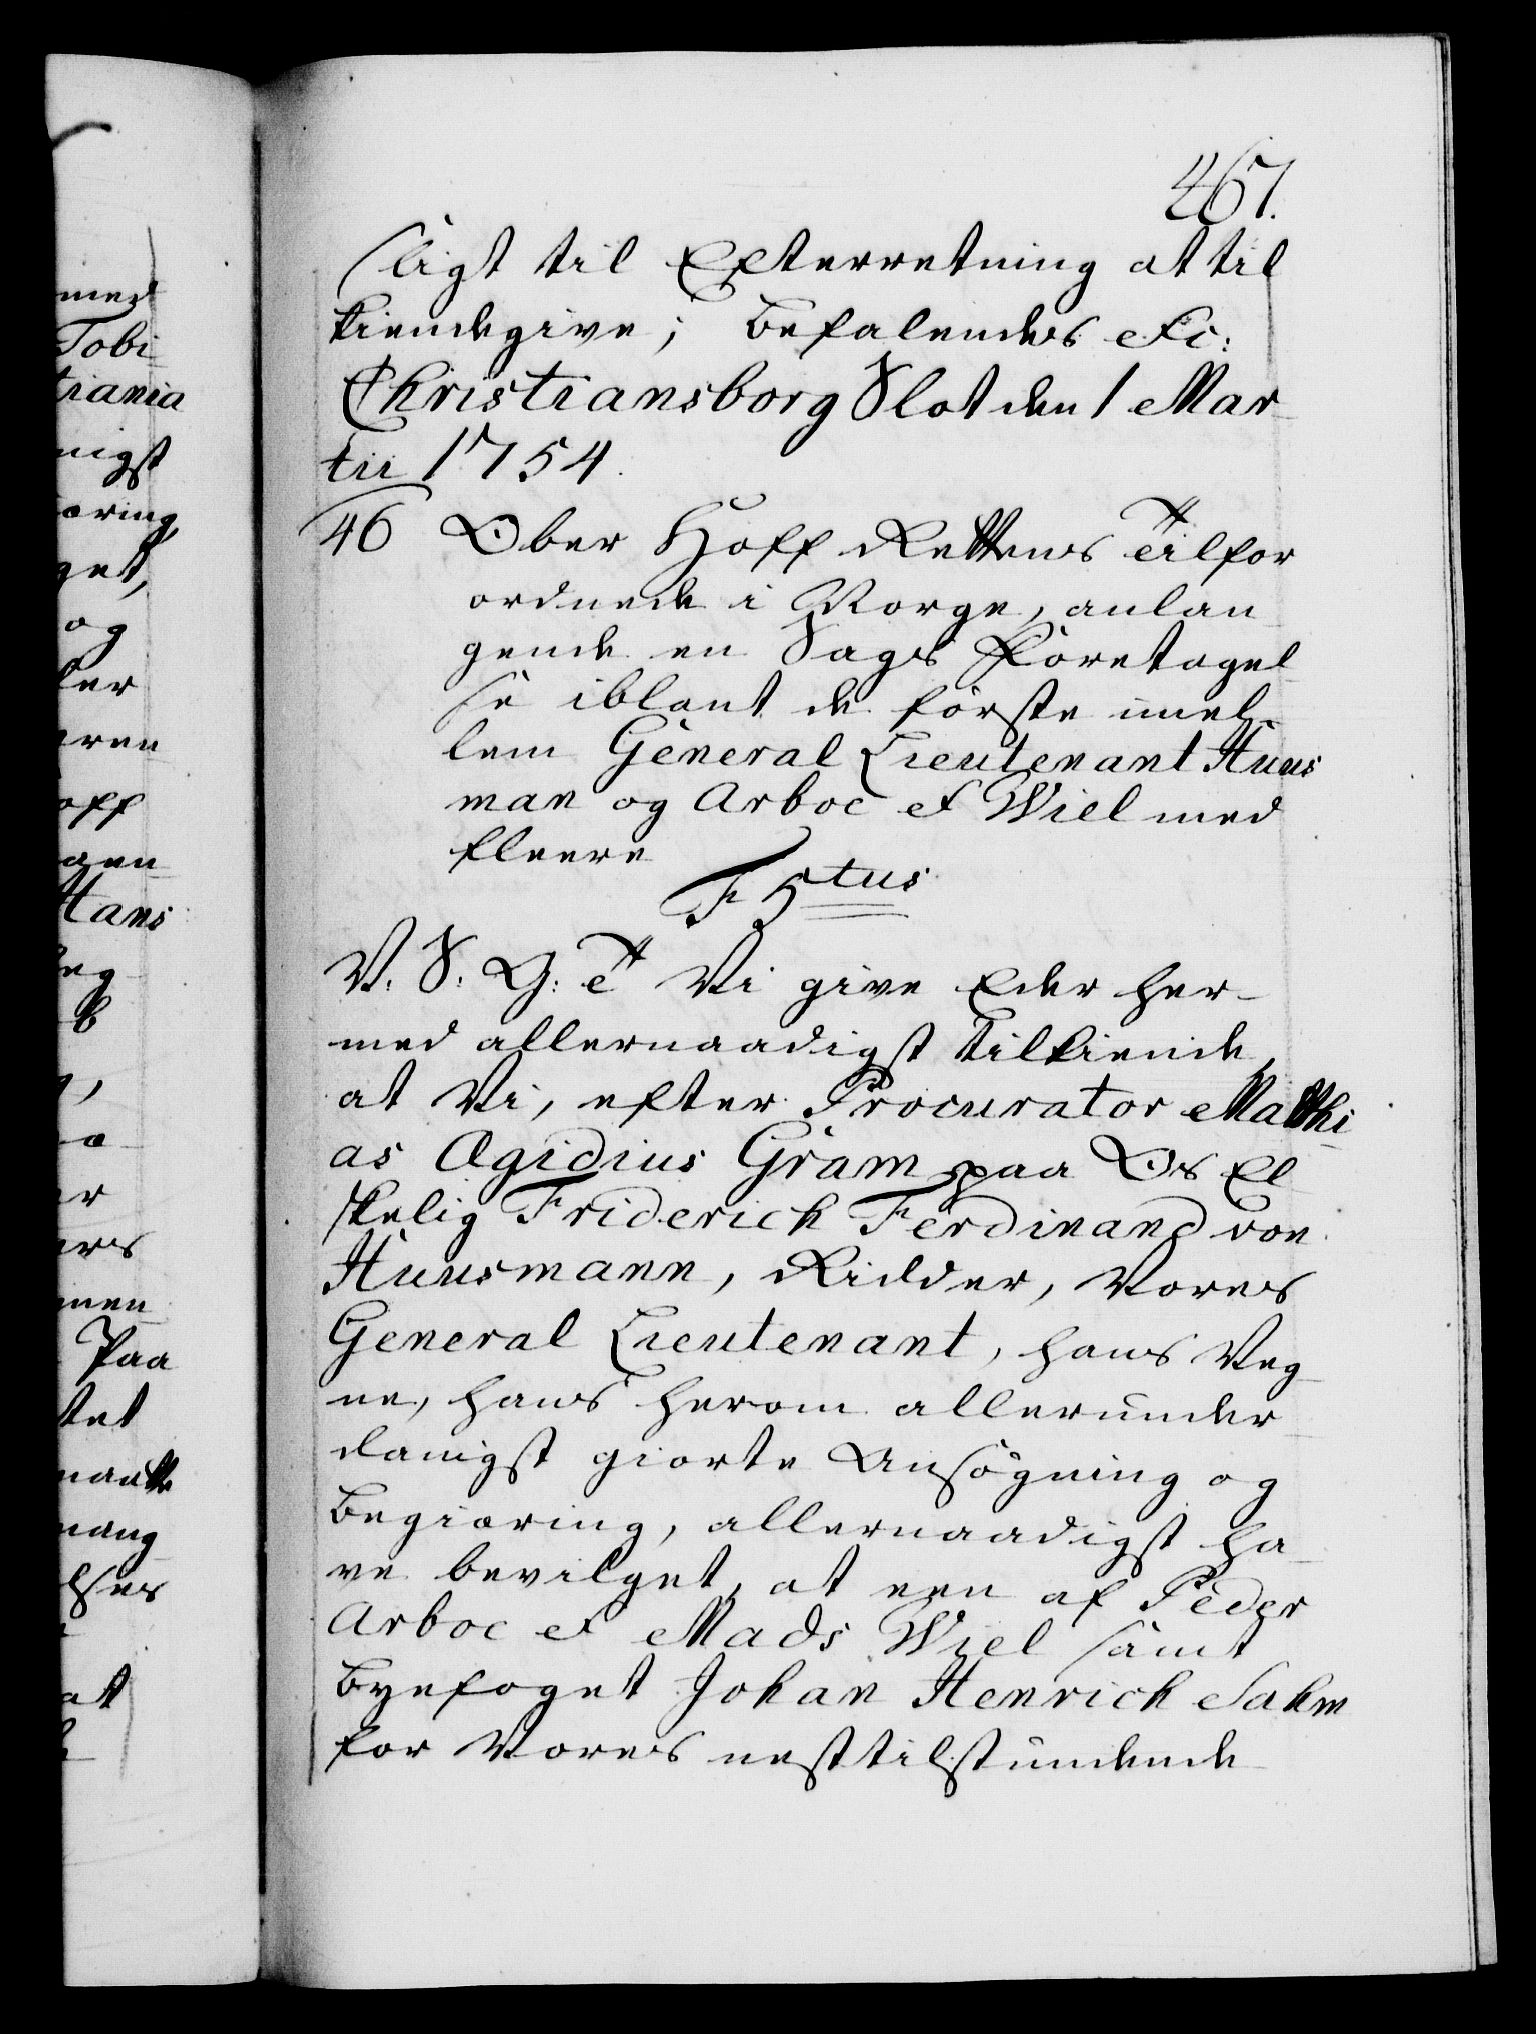 467.
sligt til Efterretning at til
kiendegive; Befalendes etc:
Christiansborg Slot den 1 Mar
tii 1754.
46 Ober Hoff Rettens Tilfor
ordnede i Norge, anlan
gende en Sags Foretagel
se iblant de første imel
lem General Lieutenant Huus
man og Arboe et Wiel med
fleere
F 5tus
V. S: G: T Vi give Eder her-
med allernaadigst tilkiende,
at Vi, efter Procurator Matthi
as Ægidius Gram paa Os El
skelig Friderich Ferdinand von
Huusmann, Ridder, Vores
General Lieutenant, hans Veg
ne, hans herom allerunder
danigst giorte Ansøgning og
Begiæring, allernaadigst ha
ve bevilget, at een af Peder
Arboe et Mads Wiel samt
Byefoget Johan Henrich Sahm
for Vores nesttilstundende
med
Tobi
tiania
nigst
æring,
get,
og
ler
eren
off
gen
Hans
eg
b
er
ers
men
Paa
tet
maatte
mang
elser
at